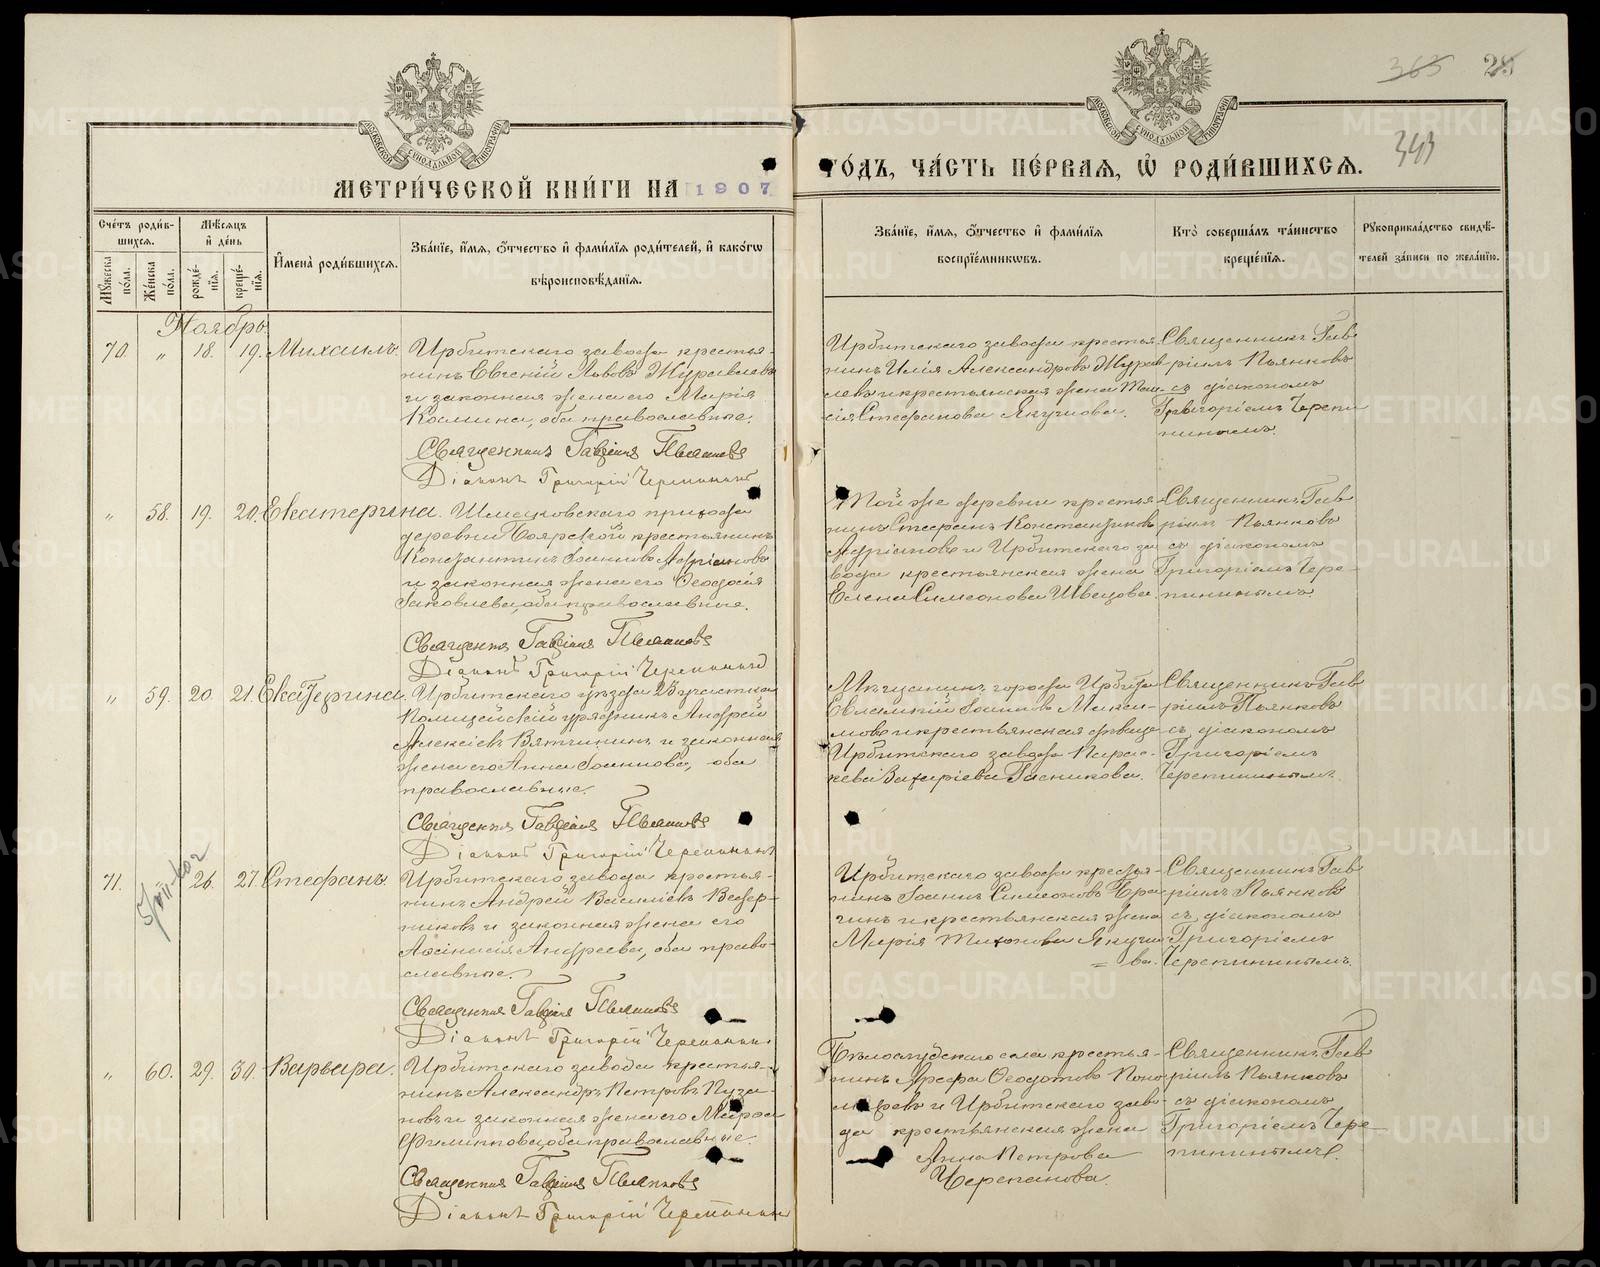 363 28
343
МОСКОВСКОЙ СѴНОДАЛЬНОЙ ТИПОГРАФІИ
МОСКОВСКОЙ СѴНОДАЛЬНОЙ ТИПОГРАФІИ
МЕТРИ́ЧЕСКОЙ КНИ́ГИ НА 1907
ГО́ДЪ, ЧА́СТЬ ПЕ́РВАЯ, Ѡ҆ РОДИ́ВШИХСЯ.
Сче́тъ роди́в-
шихся.
Мꙋ́жеска по́ла.
Же́нска по́ла.
Мѣ́сяцъ
и҆ де́нь
рожде́-
нїя.
креще́-
нїя.
И҆мена̀ роди́вшихся.
Зва́нїе, и҆́мя, ѻ҆́тчество и҆ фами́лїя роди́телей, и҆ како́гѡ
вѣроисповѣ́данїя.
Зва́нїе, и҆́мя, ѻ҆́тчество и҆ фами́лїя
воспрїе́мникѡвъ.
Кто̀ соверша́лъ та́инство
креще́нїя.
Рꙋкоприкла́дство свидѣ́-
телей за́писи по жела́нїю.
Ноябрь
70. „ 18. 19. Михаилъ.
Ирбитскаго завода крестья-
нинъ Евгеній Львовъ Журавлевъ
и законная жена его Марія
Космина, оба православные.
Священникъ Гавріилъ Пьянковъ
Діаконъ Григорій Черепининъ
Ирбитскаго завода крестья-
нинъ Илія Александровъ Журав-
левъ и крестьянская жена Таи-
сія Стефанова Якучова.
Священникъ Гав-
ріилъ Пьянковъ
съ діакономъ
Григоріемъ Черепи-
нинымъ.
„ 58. 19. 20. Екатерина.
Шмаковскаго прихода
деревни Боярской крестьянинъ
Константинъ Іоанновъ Адріановъ
и законная жена его Ѳеодосія
Іаковлева, оба православные.
Священникъ Гавріилъ Пьянковъ
Діаконъ Григорій Черепининъ
Той же деревни крестья-
нинъ Стефанъ Константиновъ
Адріановъ и Ирбитскаго за-
вода крестьянская жена
Елена Симеонова Швецова.
Священникъ Гав-
ріилъ Пьянковъ
съ діакономъ
Григоріемъ Чере-
пининымъ.
„ 59. 20. 21. Екатерина.
Ирбитскаго уѣзда 23 участка
Полицейскій урядникъ Андрей
Алексіевъ Вятчининъ и законная
жена его Анна Іоаннова, оба
православные.
Священникъ Гавріилъ Пьянковъ
Діаконъ Григорій Черепининъ
Мѣщанинъ города Ирбита
Евлампій Іоанновъ Макси-
мовъ и крестьянская дѣвица
Ирбитскаго завода Парас-
кева Захаріева Гасникова.
Священникъ Гав-
ріилъ Пьянковъ
съ діакономъ
Григоріемъ
Черепининымъ.
71. 26. 27. Стефанъ.
Ирбитскаго завода крестья-
нинъ Андрей Василіевъ Ведер-
никовъ и законная жена его
Аѳанасія Андреева, оба право-
славные.
Священникъ Гавріилъ Пьянковъ
Діаконъ Григорій Черепининъ
Ирбитскаго завода крестья-
нинъ Іоаннъ Симеоновъ Бра-
гинъ и крестьянская жена
Марія Тихонова Якучо-
= ва.
Священникъ Гав-
ріилъ Пьянковъ
съ діакономъ
Григоріемъ
Черепининымъ.
„ 60. 29. 30. Варвара.
Ирбитскаго завода крестья-
нинъ Александръ Петровъ Пуза-
новъ и законная жена его Марѳа
Филиппова, оба православные.
Священникъ Гавріилъ Пьянковъ
Діаконъ Григорій Черепининъ
Бѣлослудскаго села крестья-
нинъ Ареѳа Ѳеодотовъ Поно-
маревъ и Ирбитскаго заво-
да крестьянская жена
Анна Петрова
Черепанова.
Священникъ Гав-
ріилъ Пьянковъ
съ діакономъ
Григоріемъ Чере-
пининымъ.
METRIKI.GASO-URAL.RU